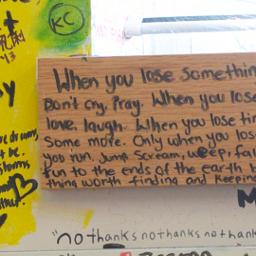 KC
When you lose somethin
Don't cry, Pray. When you lose
love, laugh. When you lose tim
Some more. Only when you los
you run, Jump, Scream, weep, fal
fun to the ends of the earth b
thing worth finding and keeping
"no thanks no thanks no thank